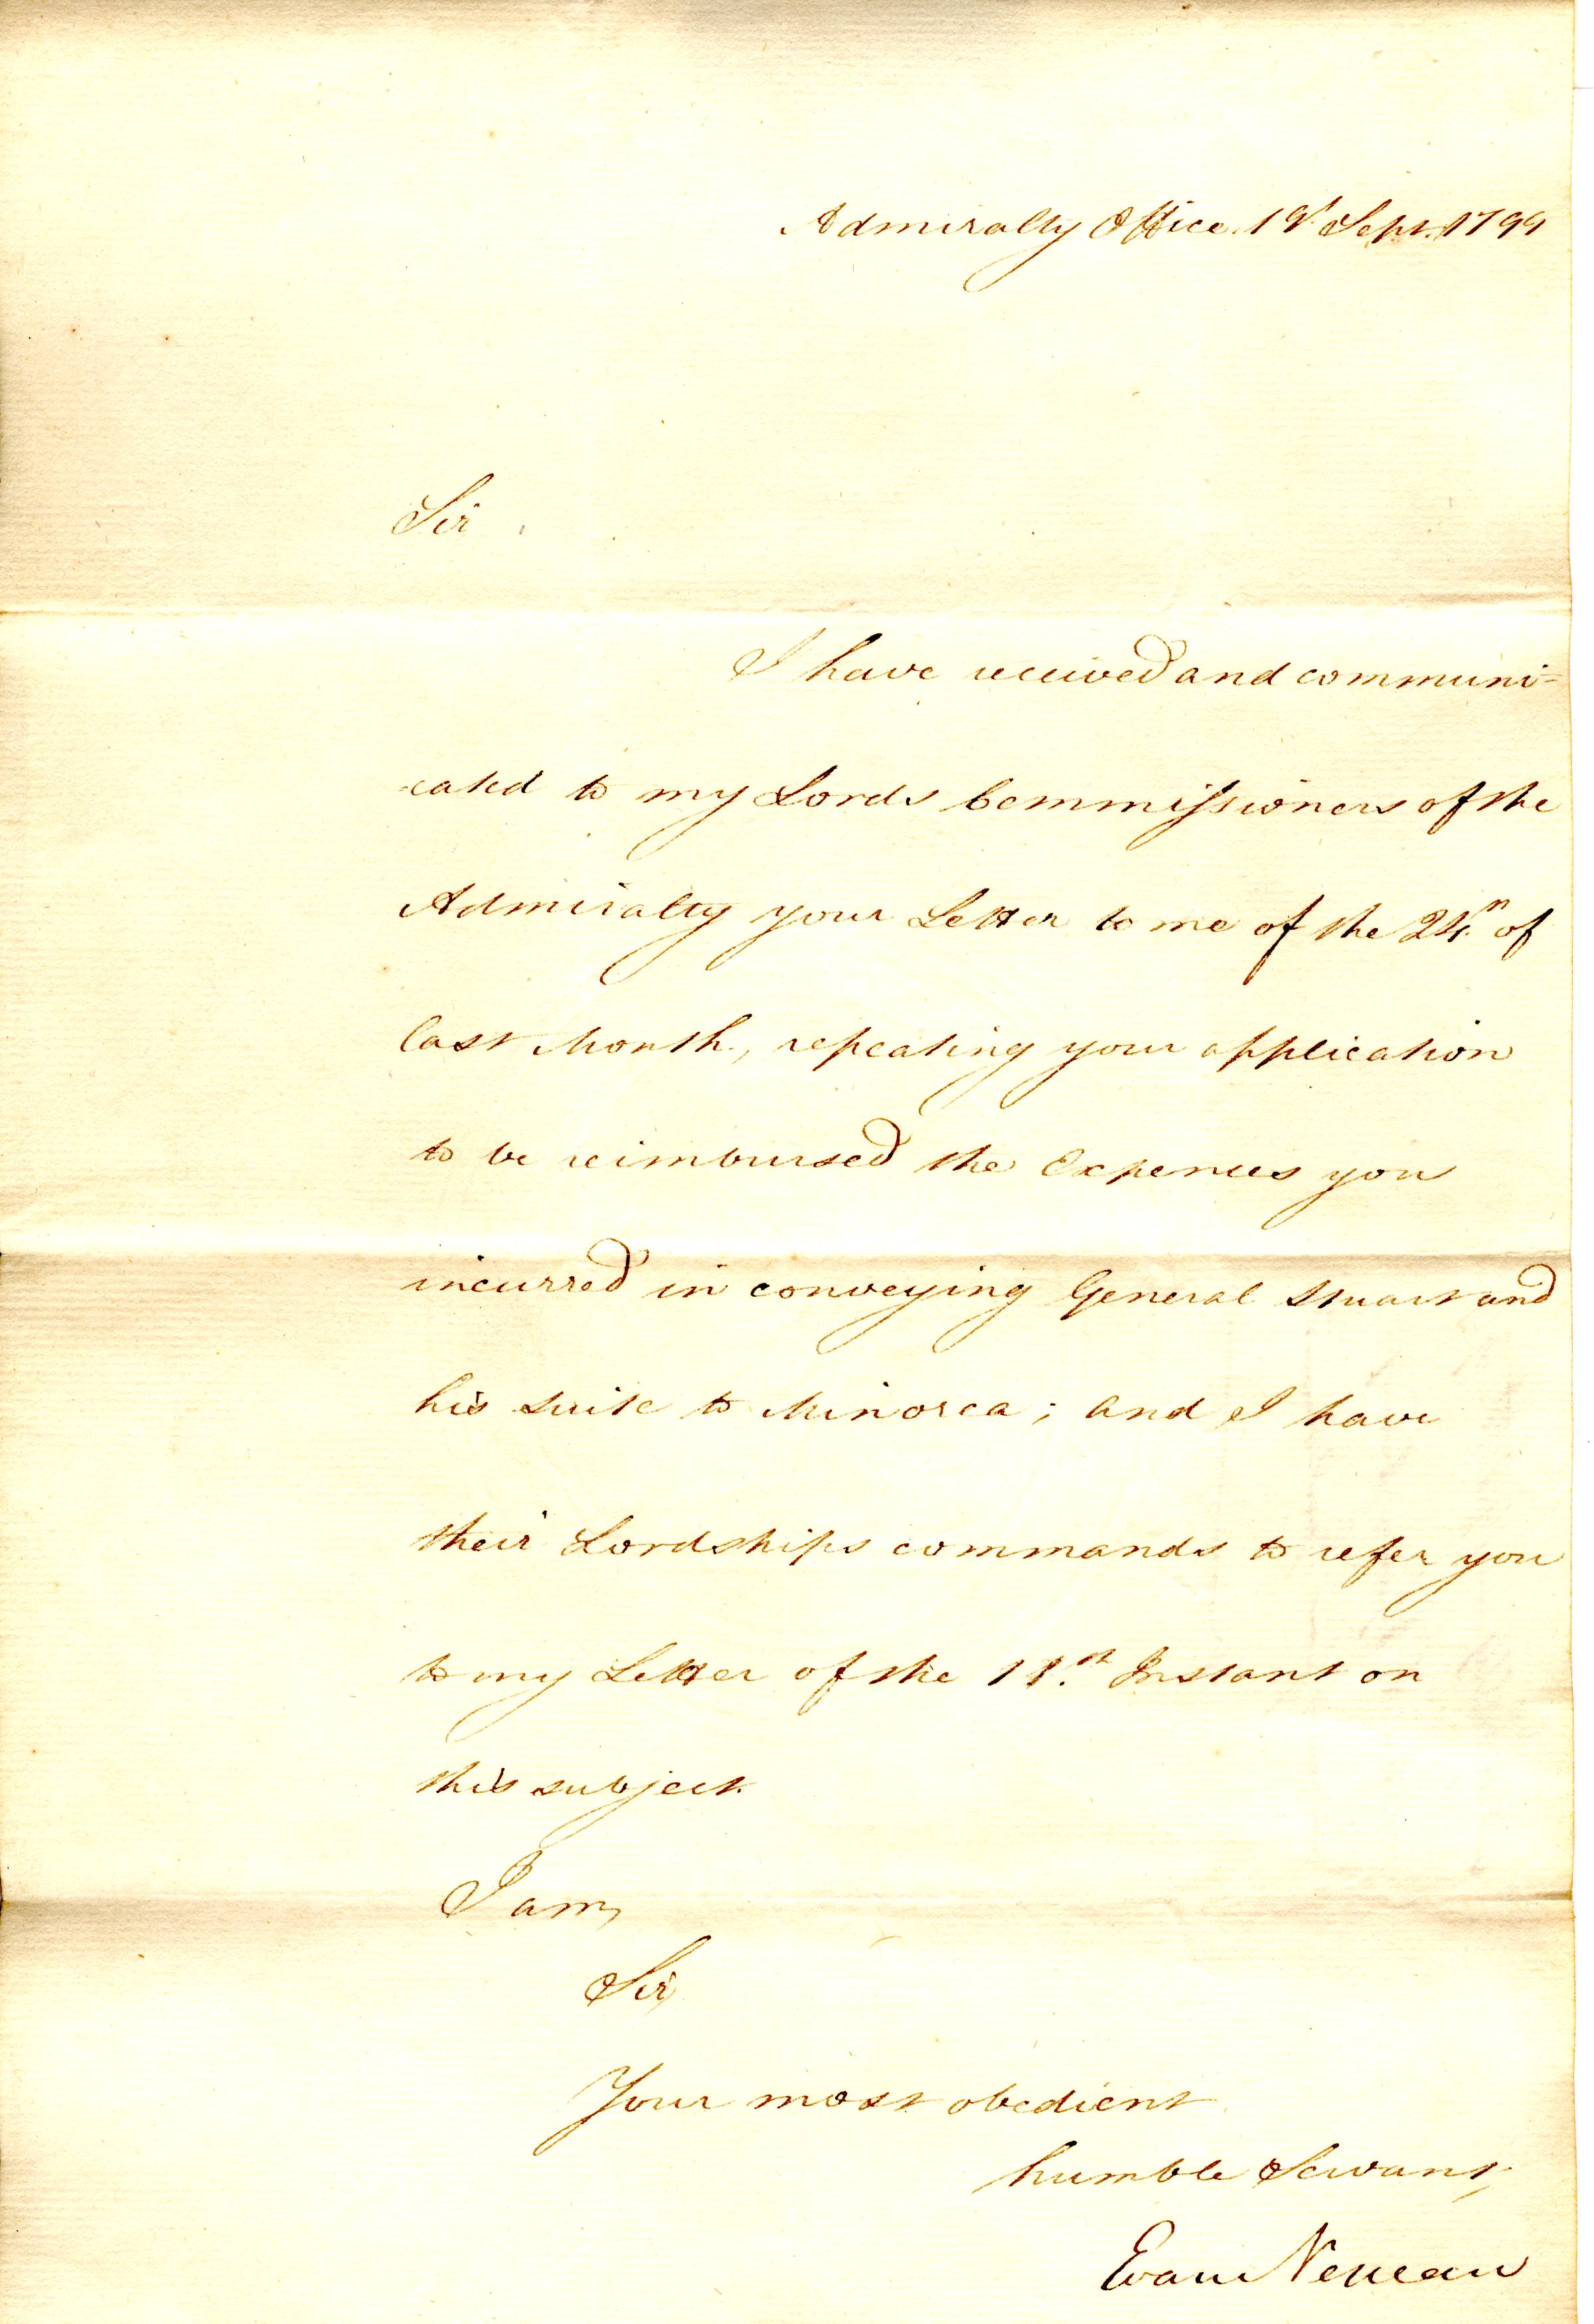 Admiralty Office. 19th Sept. 1799
Sir
I have received and communi=
=cated to my Lords Commissioners of the
Admiralty your Letter to me of the 24th of
last Month, repeating your application
to be reimbursed the Expences you
incurred in conveying General Stuart and
his suite to Minorca; and I have
their Lordships commands to refer you
to my Letter of the 11st Instant on
this subject.
I am,
Sir,
Your most obedient
humble Servant,
Evan Nepean